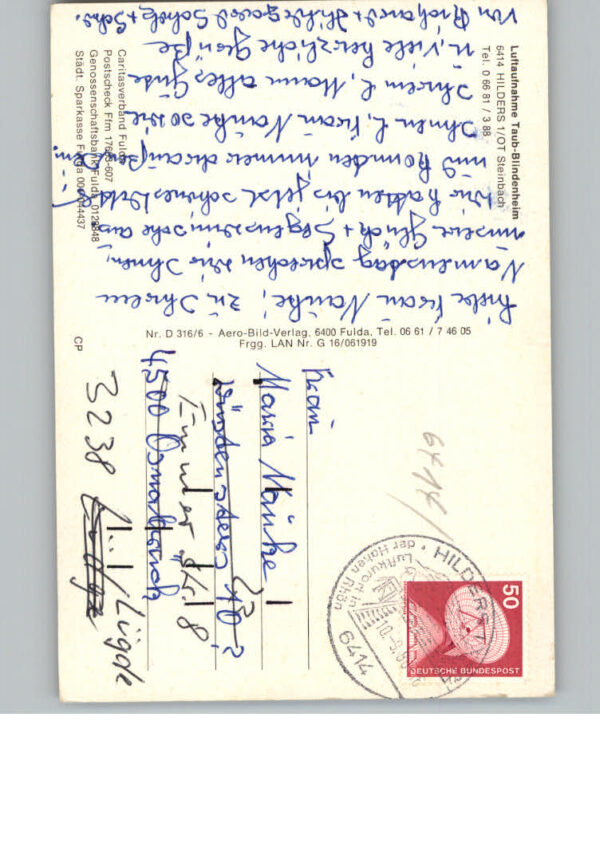 Luftaufnahme Taub-Blindenheim
6414 HILDERS 1/OT Steinbach
Tel. 0 66 81 / 3 88
Liebe Frau Nauke, zu Ihrem
Namenstag sprechen wir Ihnen
unsere Glück + Segenswünsche aus
Wir hatten bis jetzt schönes Wetter
und konnten immer draußen sein.
Ihnen l. Frau Nauke sowie
Ihrem l. Mann alles Gute
u. viele herzliche Grüße
von Richard + Hildegard Scholz +
Caritasverband Fulda
Postscheck Ffm 600-607
Genossenschaftsbank Fulda
Städt. Sparkasse Fulda
Nr. D 316/6 - Aero-Bild-Verlag, 6400 Fulda, Tel. 06 61 / 7 46 05
Frgg. LAN Nr. G 16/061919
CP
Frau
Maria Nauke
4500 Osnabrück
3238
Lügde
6414
HILDERS
Luftkurort in
der Hohen Rhön
6414
50
DEUTSCHE BUNDESPOST